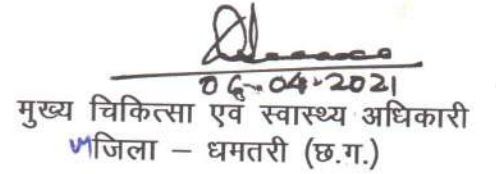 06-04-2021
मुख्य चिकित्सा एवं स्वास्थ्य अधिकारी
जिला – धमतरी (छ.ग.)